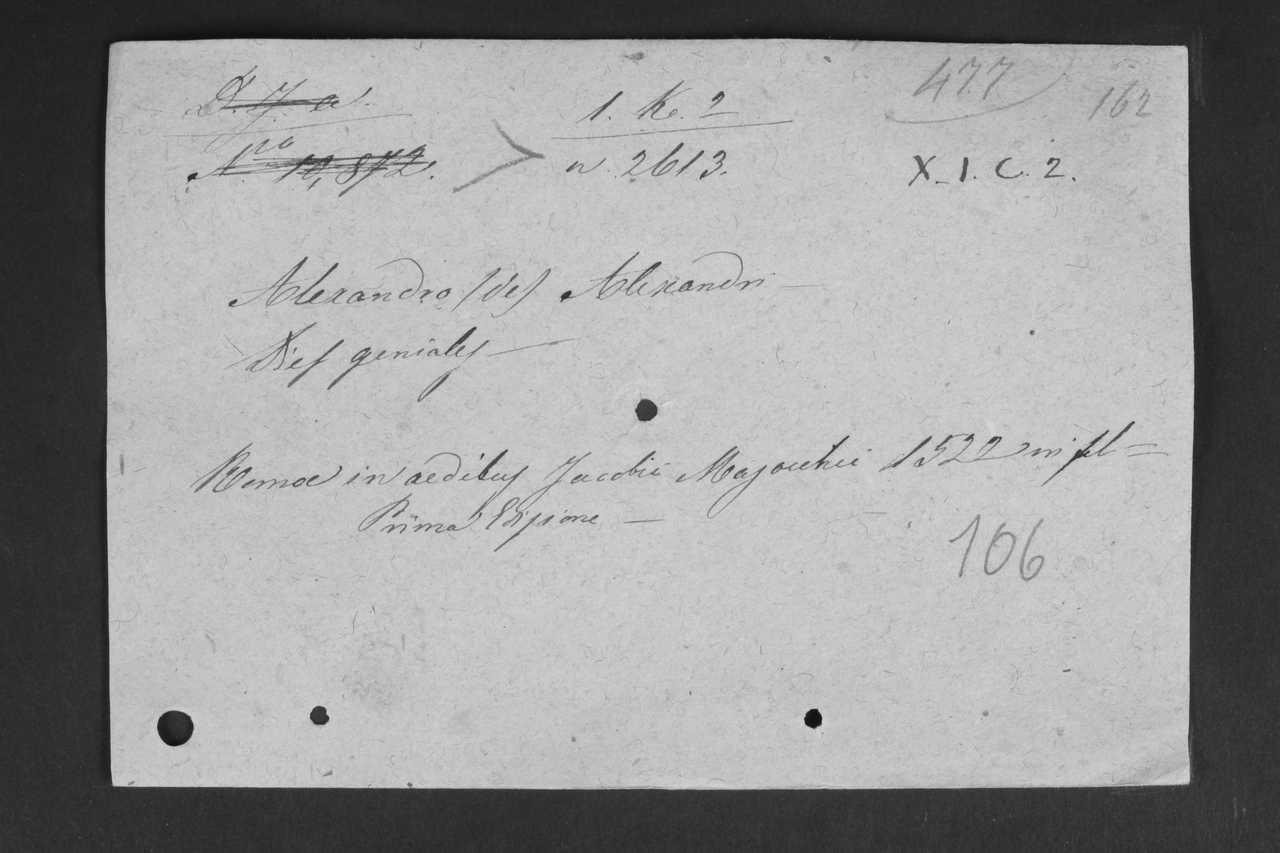 D. J. a.
N.ro 10,872.
1. Ke. 2
n. 2613.
477
162
X. I. C. 2.
Alexandro (de) Alexandri —
Dies geniales —
Romae in aedibus Jacobi Mazochii 1522 in fol =
Prima Edizione —
106